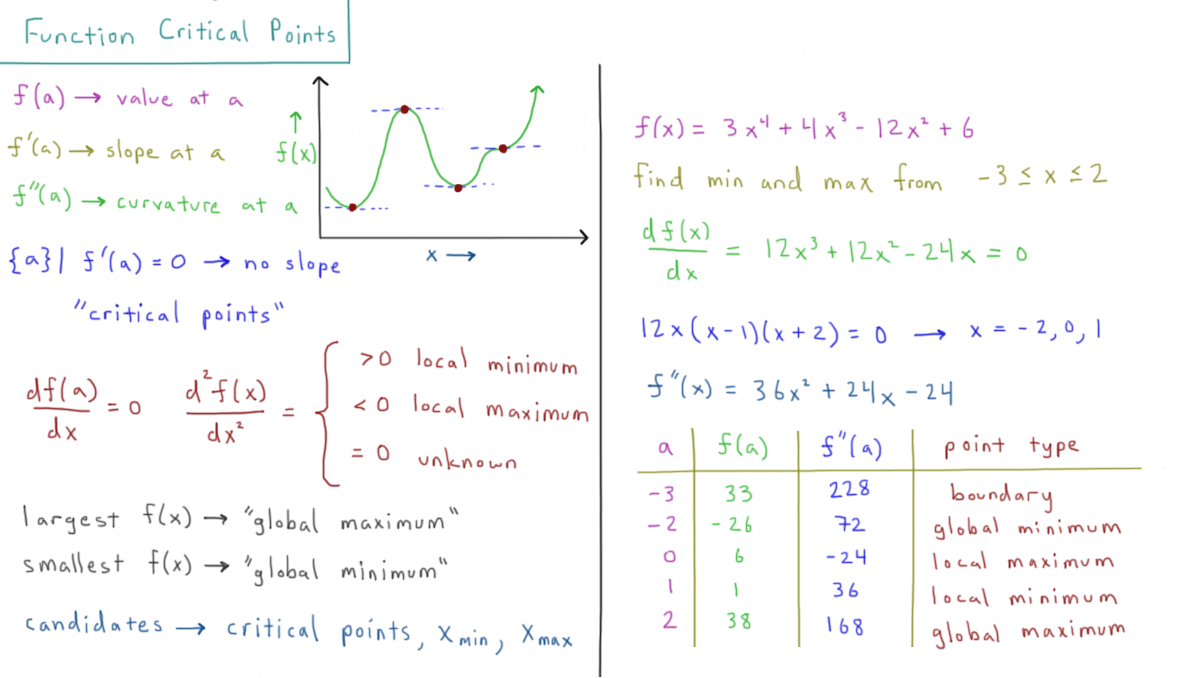 Function Critical Points
f(a) → value at a
f'(a) → slope at a
f"(a) → curvature at a
{a}| f'(a) = 0 → no slope
"critical points"
↑
f(x)
x →
df(a)/dx = 0 d²f(x)/dx² = {
>0 local minimum
<0 local maximum
=0 unknown
largest f(x) → "global maximum"
smallest f(x) → "global minimum"
candidates → critical points, x min, x max
f(x) = 3x⁴ + 4x³ - 12x² + 6
find min and max from -3 ≤ x ≤ 2
df(x)/dx = 12x³ + 12x² - 24x = 0
12x(x-1)(x+2) = 0 → x = -2, 0, 1
f"(x) = 36x² + 24x - 24
a f(a) f"(a) point type
-3 33 228 boundary
-2 -26 72 global minimum
0 6 -24 local maximum
1 1 36 local minimum
2 38 168 global maximum